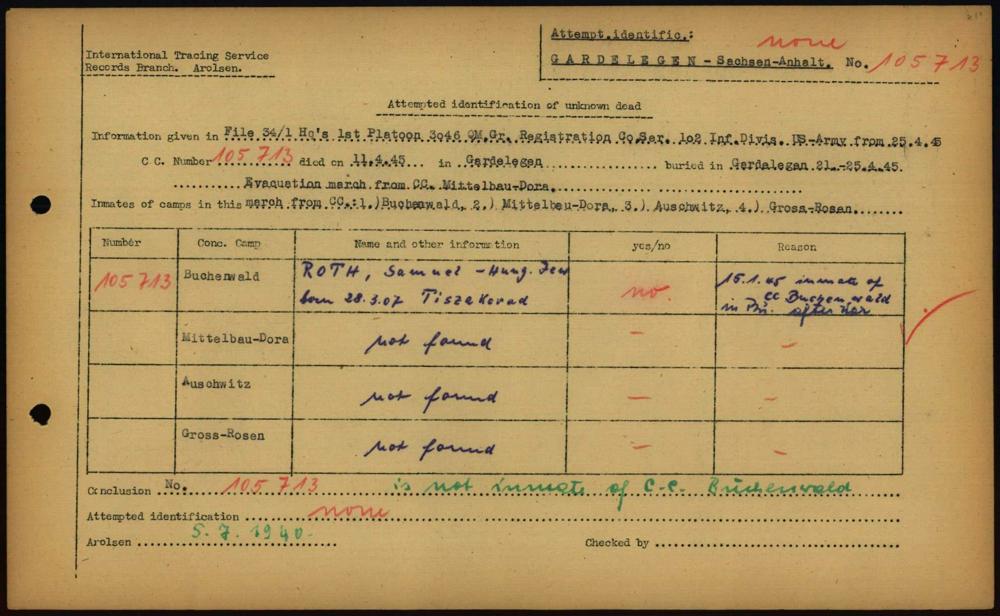 Attempt.identific.: none
International Tracing Service
Records Branch. Arolsen.
GARDELEGEN - Sachsen-Anhalt. No. 105713
Attempted identification of unknown dead
Information given in File 34/1 Hq's 1st Platoon 3o46 QM.Gr. Registration Co.Ser. 1o2 Inf.Divis. US-Army from 25.4.45
C C. Number 105 713 died on 11.4.45 in Gardelegen buried in Gardelegen 21.-25.4.45.
Evaquation march from CC. Mittelbau-Dora.
Inmates of camps in this march from CC.:1.)Buchenwald, 2.) Mittelbau-Dora, 3.) Auschwitz, 4.) Gross-Rosen
Number Conc. Camp Name and other information yes/no Reason
105 713 Buchenwald ROTH, Samuel - Hung. Jew no. 15.1.45 inmate of
born 28.3.07 Tiszakorad CC Buchenwald
in after war
Mittelbau-Dora not found - -
Auschwitz not found - -
Gross-Rosen not found - -
Conclusion No. 105713 is not inmate of C.C. Buchenwald
Attempted identification none
Arolsen 5. 7. 1940. Checked by